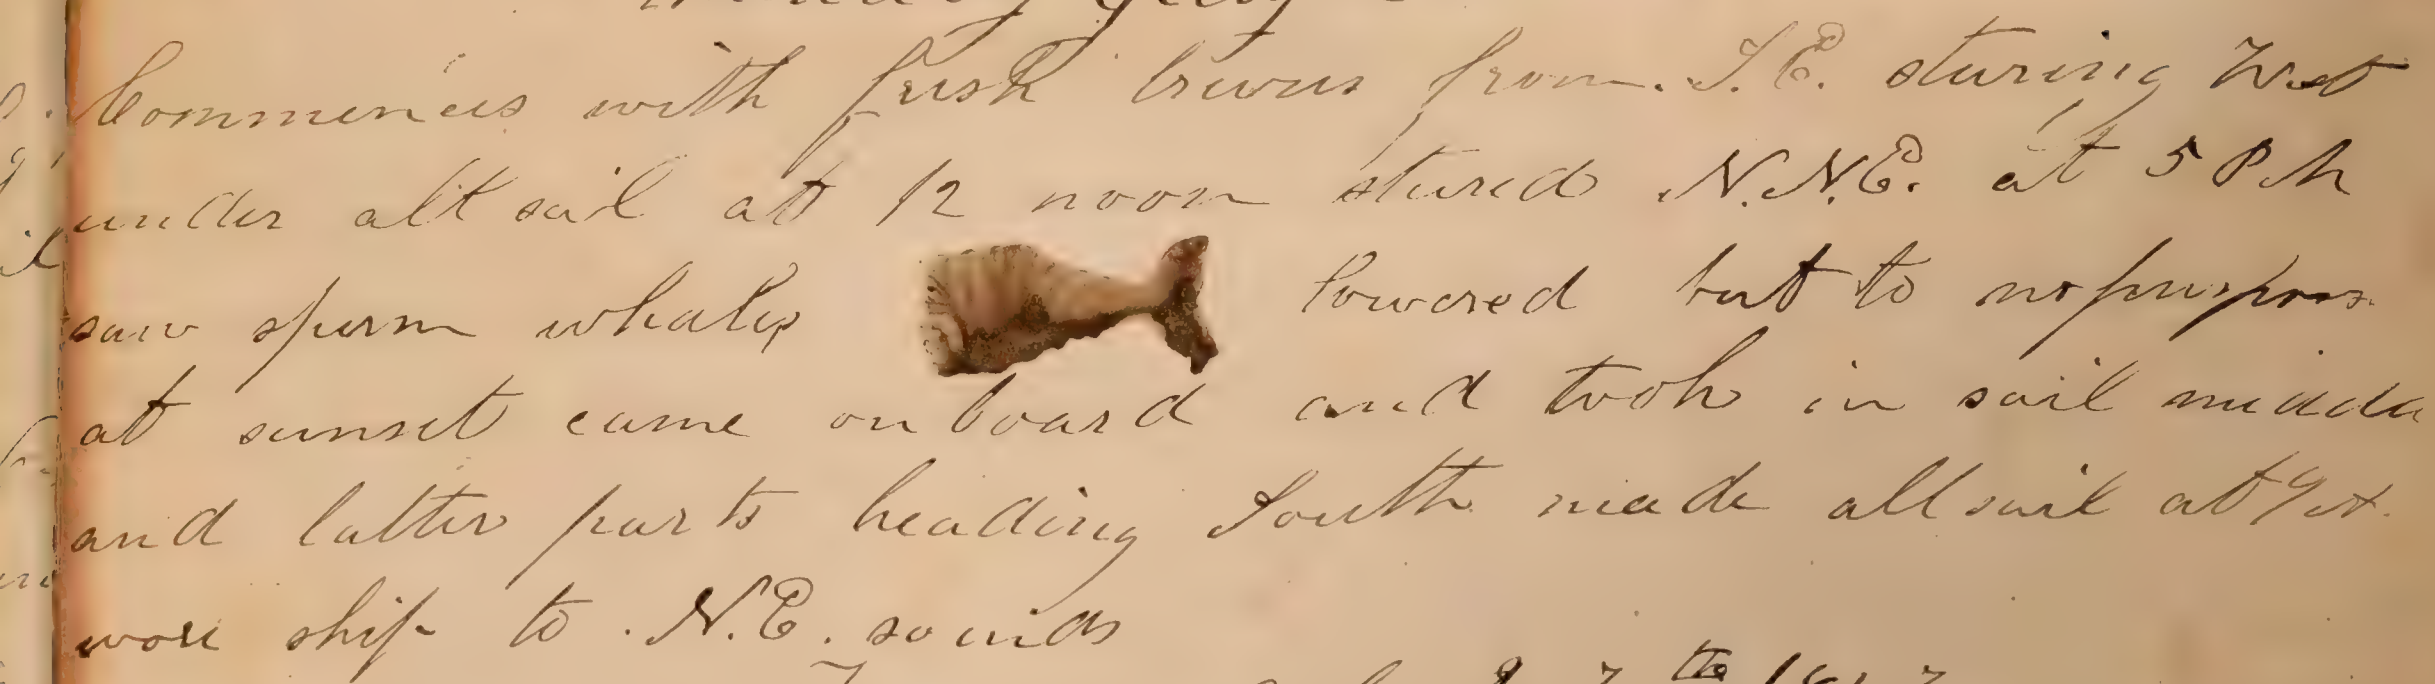 Commences with fresh brewes from S.E. stering West
under all sail at 12 noon stered N.N.E. at 5 P M
saw sperm whales lowered but to no purpose
at sunset came on board and took in sail midda
and latter parts heading South made all sail at
wore ship to N.E.